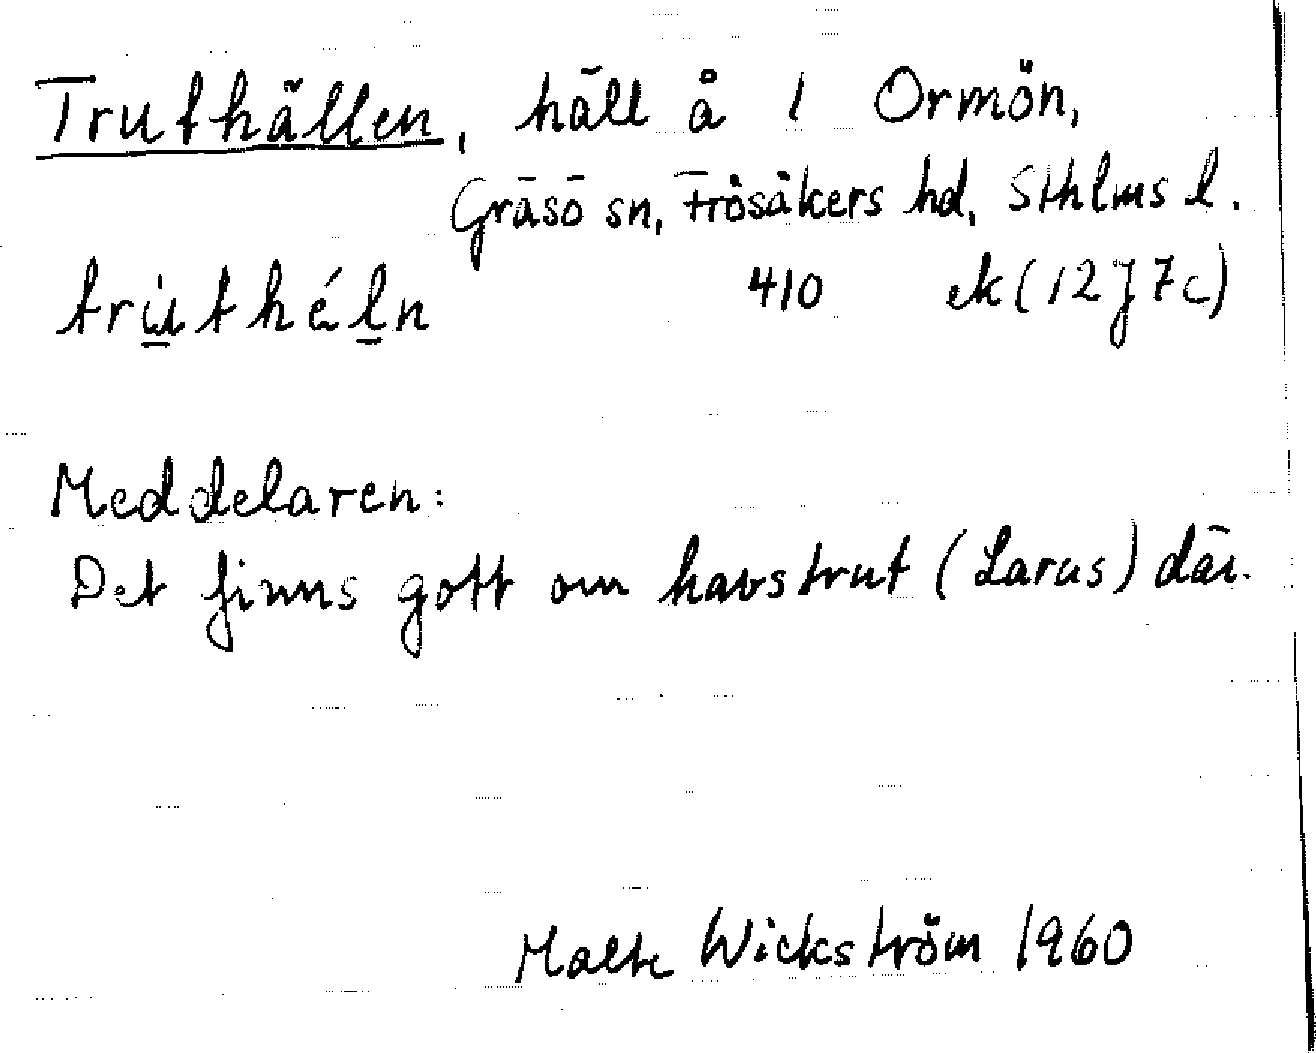 Truthällen, häll å 1 Ormön,
Gräsö sn, Frösåkers hd, Sthlms l.
trùthéln 410 ek (12J7c)
Meddelaren:
Det finns gott om havstrut (Larus) där.
Malte Wickström 1960